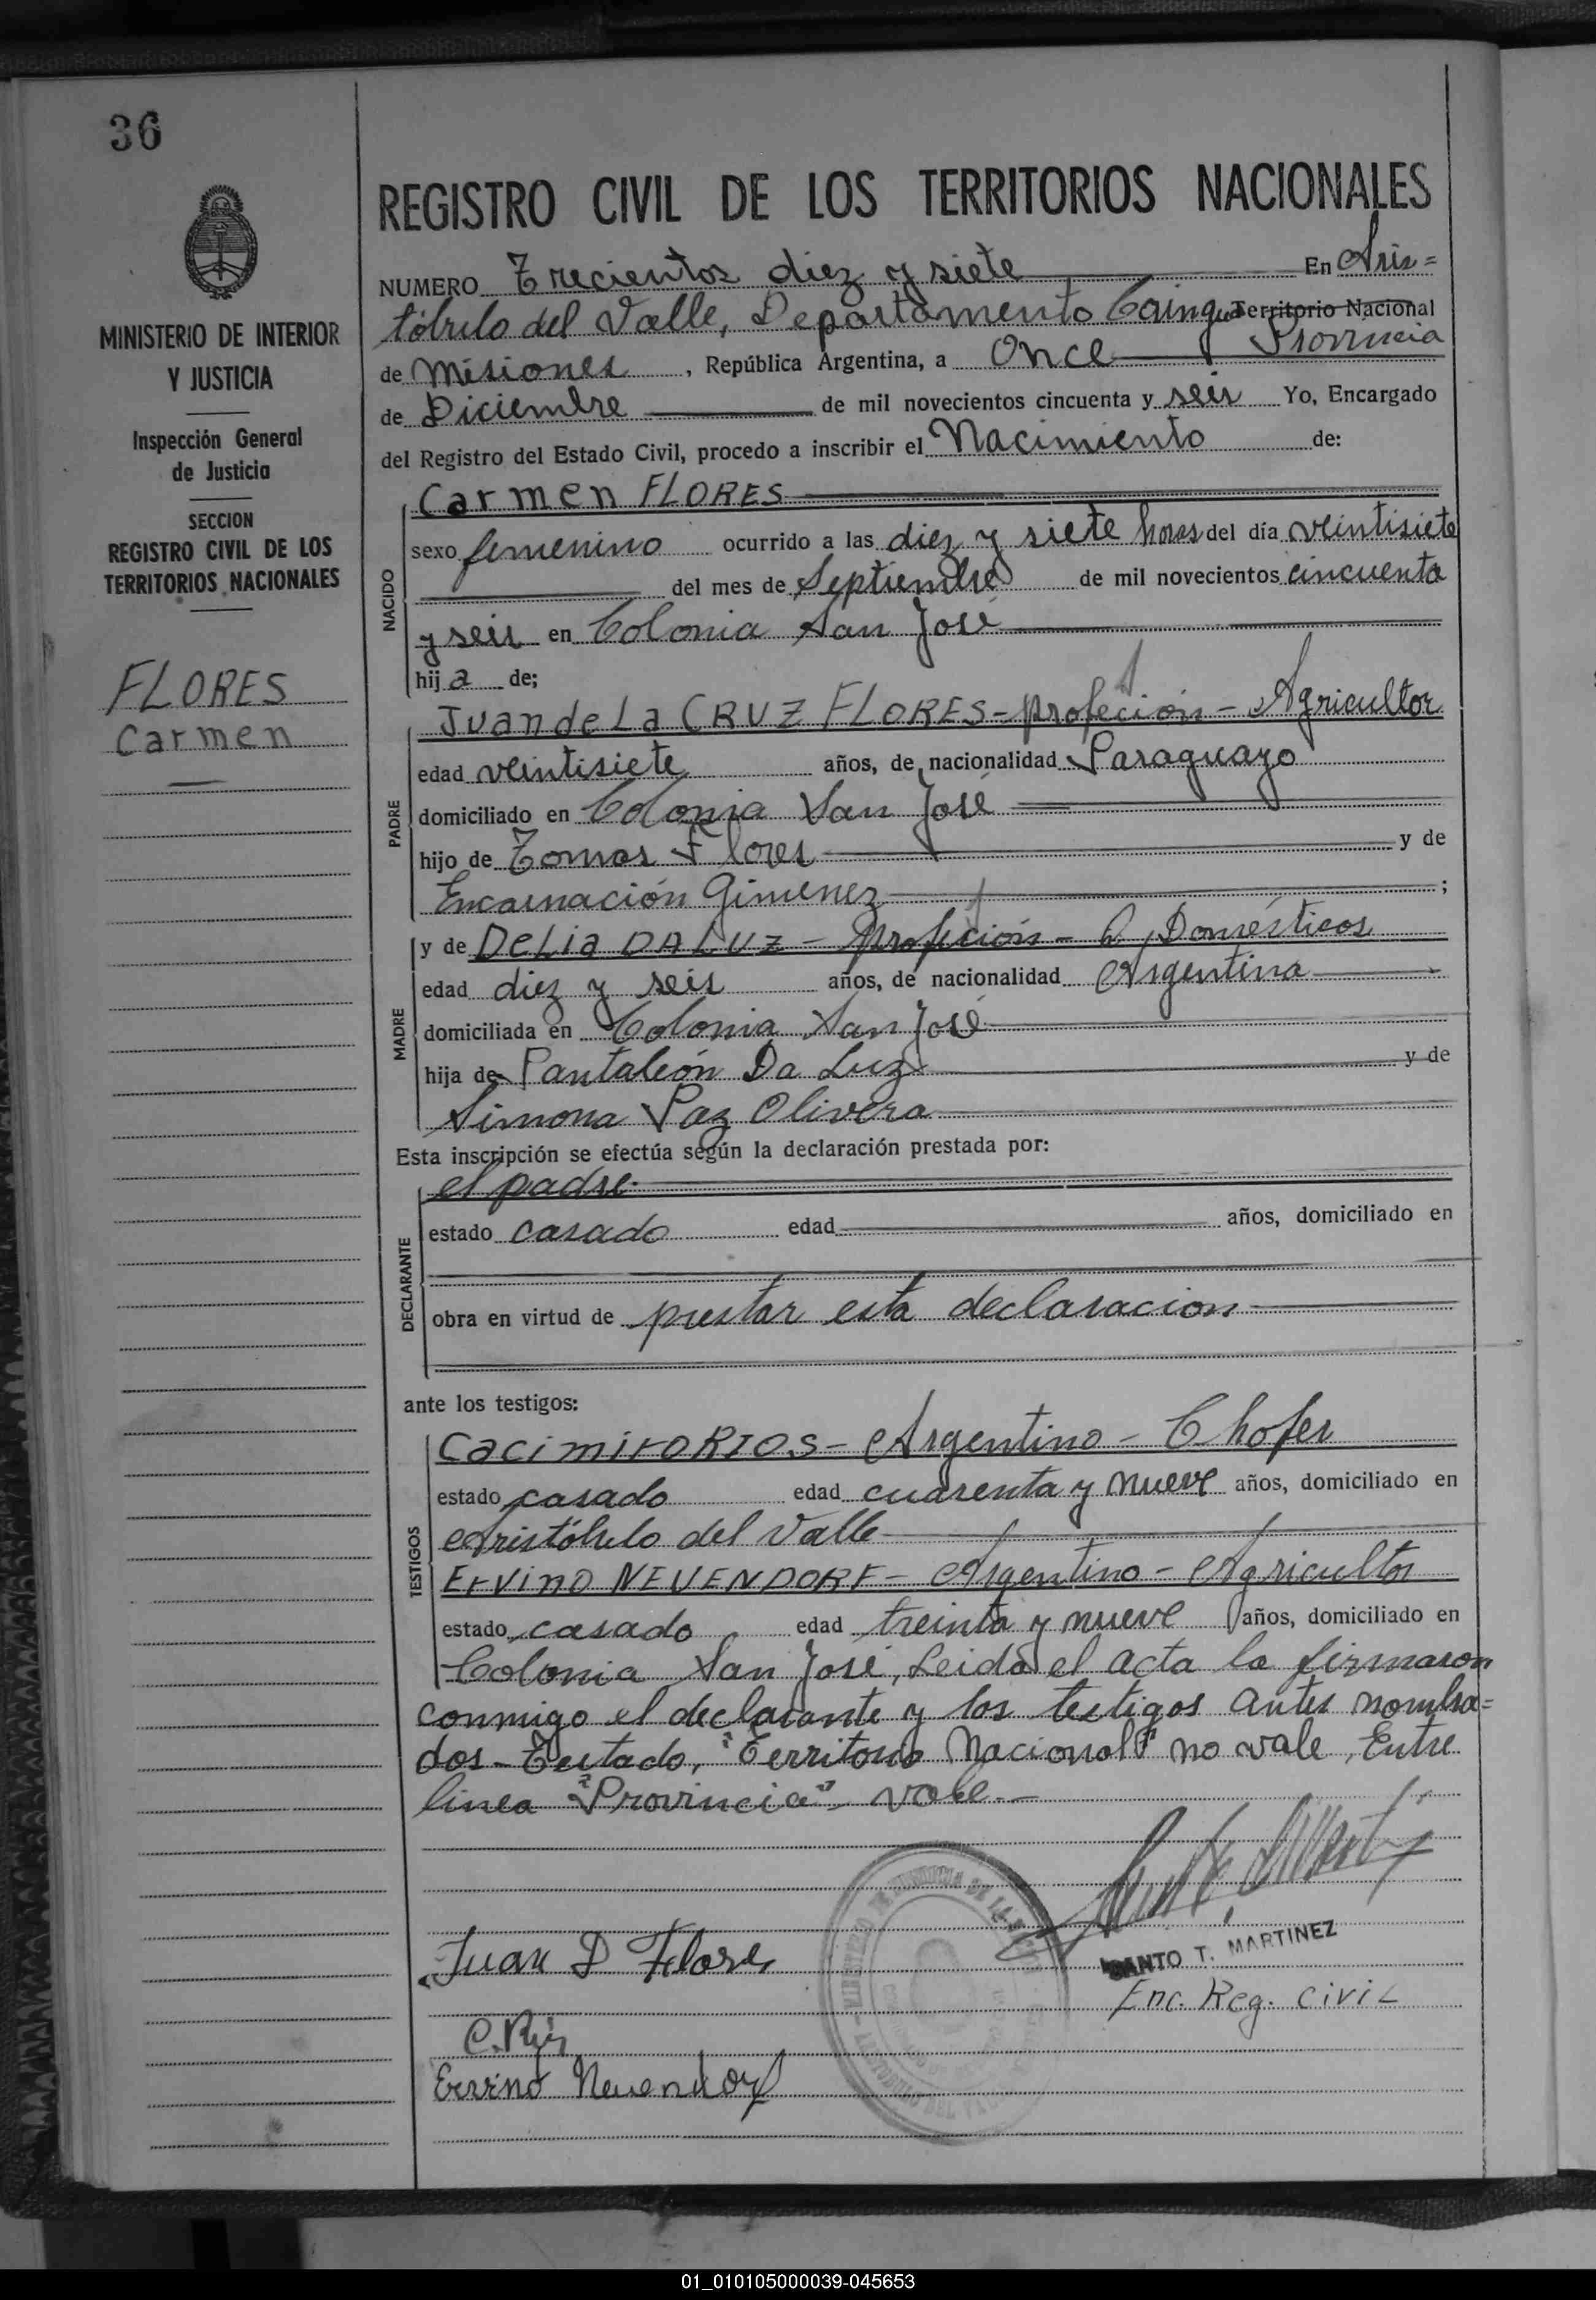 36
REGISTRO CIVIL DE LOS TERRITORIOS NACIONALES
MINISTERIO DE INTERIOR
Y JUSTICIA
Inspección General
de Justicia
SECCION
REGISTRO CIVIL DE LOS
TERRITORIOS NACIONALES
FLORES
Carmen
NUMERO Trecientos diez y siete En Aris=
tóbulo del Valle, Departamento Cainguá Territorio Nacional
Provincia
de Misiones, República Argentina, a Once
de Diciembre de mil novecientos cincuenta y seis Yo, Encargado
del Registro del Estado Civil, procedo a inscribir el Nacimiento de:
NACIDO
Carmen FLORES
sexo femenino ocurrido a las diez y siete horas del día veintisiete
del mes de Septiembre de mil novecientos cincuenta
y seis en Colonia San José
hija de;
PADRE
Juan de La CRUZ FLORES - profeción - Agricultor
edad veintisiete años, de nacionalidad Paraguayo
domiciliado en Colonia San José
hijo de Tomas Flores y de
Encarnación Gimenez ;
MADRE
y de DeLia DA LUZ - profeción - Q. Domésticos
edad diez y seis años, de nacionalidad Argentina
domiciliada en Colonia San José
hija de Pantaleón Da Luz y de
Simona Paz Olivera
Esta inscripción se efectúa según la declaración prestada por:
DECLARANTE
el padre
estado casado edad años, domiciliado en
obra en virtud de prestar esta declaracion
ante los testigos:
TESTIGOS
Cacimiro RIOS - Argentino - Chofer
estado casado edad cuarenta y nueve años, domiciliado en
Aristóbulo del Valle
Ervino NEUENDORF - Argentino - Agricultor
estado casado edad treinta y nueve años, domiciliado en
Colonia San José, Leida el acta la firmaron
conmigo el declarante y los testigos antes nombra=
dos - Testado, "Territorio Nacional" no vale, Entre
linea "Provincia" vale -
Juan D Flores
SANTO T. MARTINEZ
Enc. Reg. civiL
C. Rios
Ervino Neuendorf
01_010105000039-045653